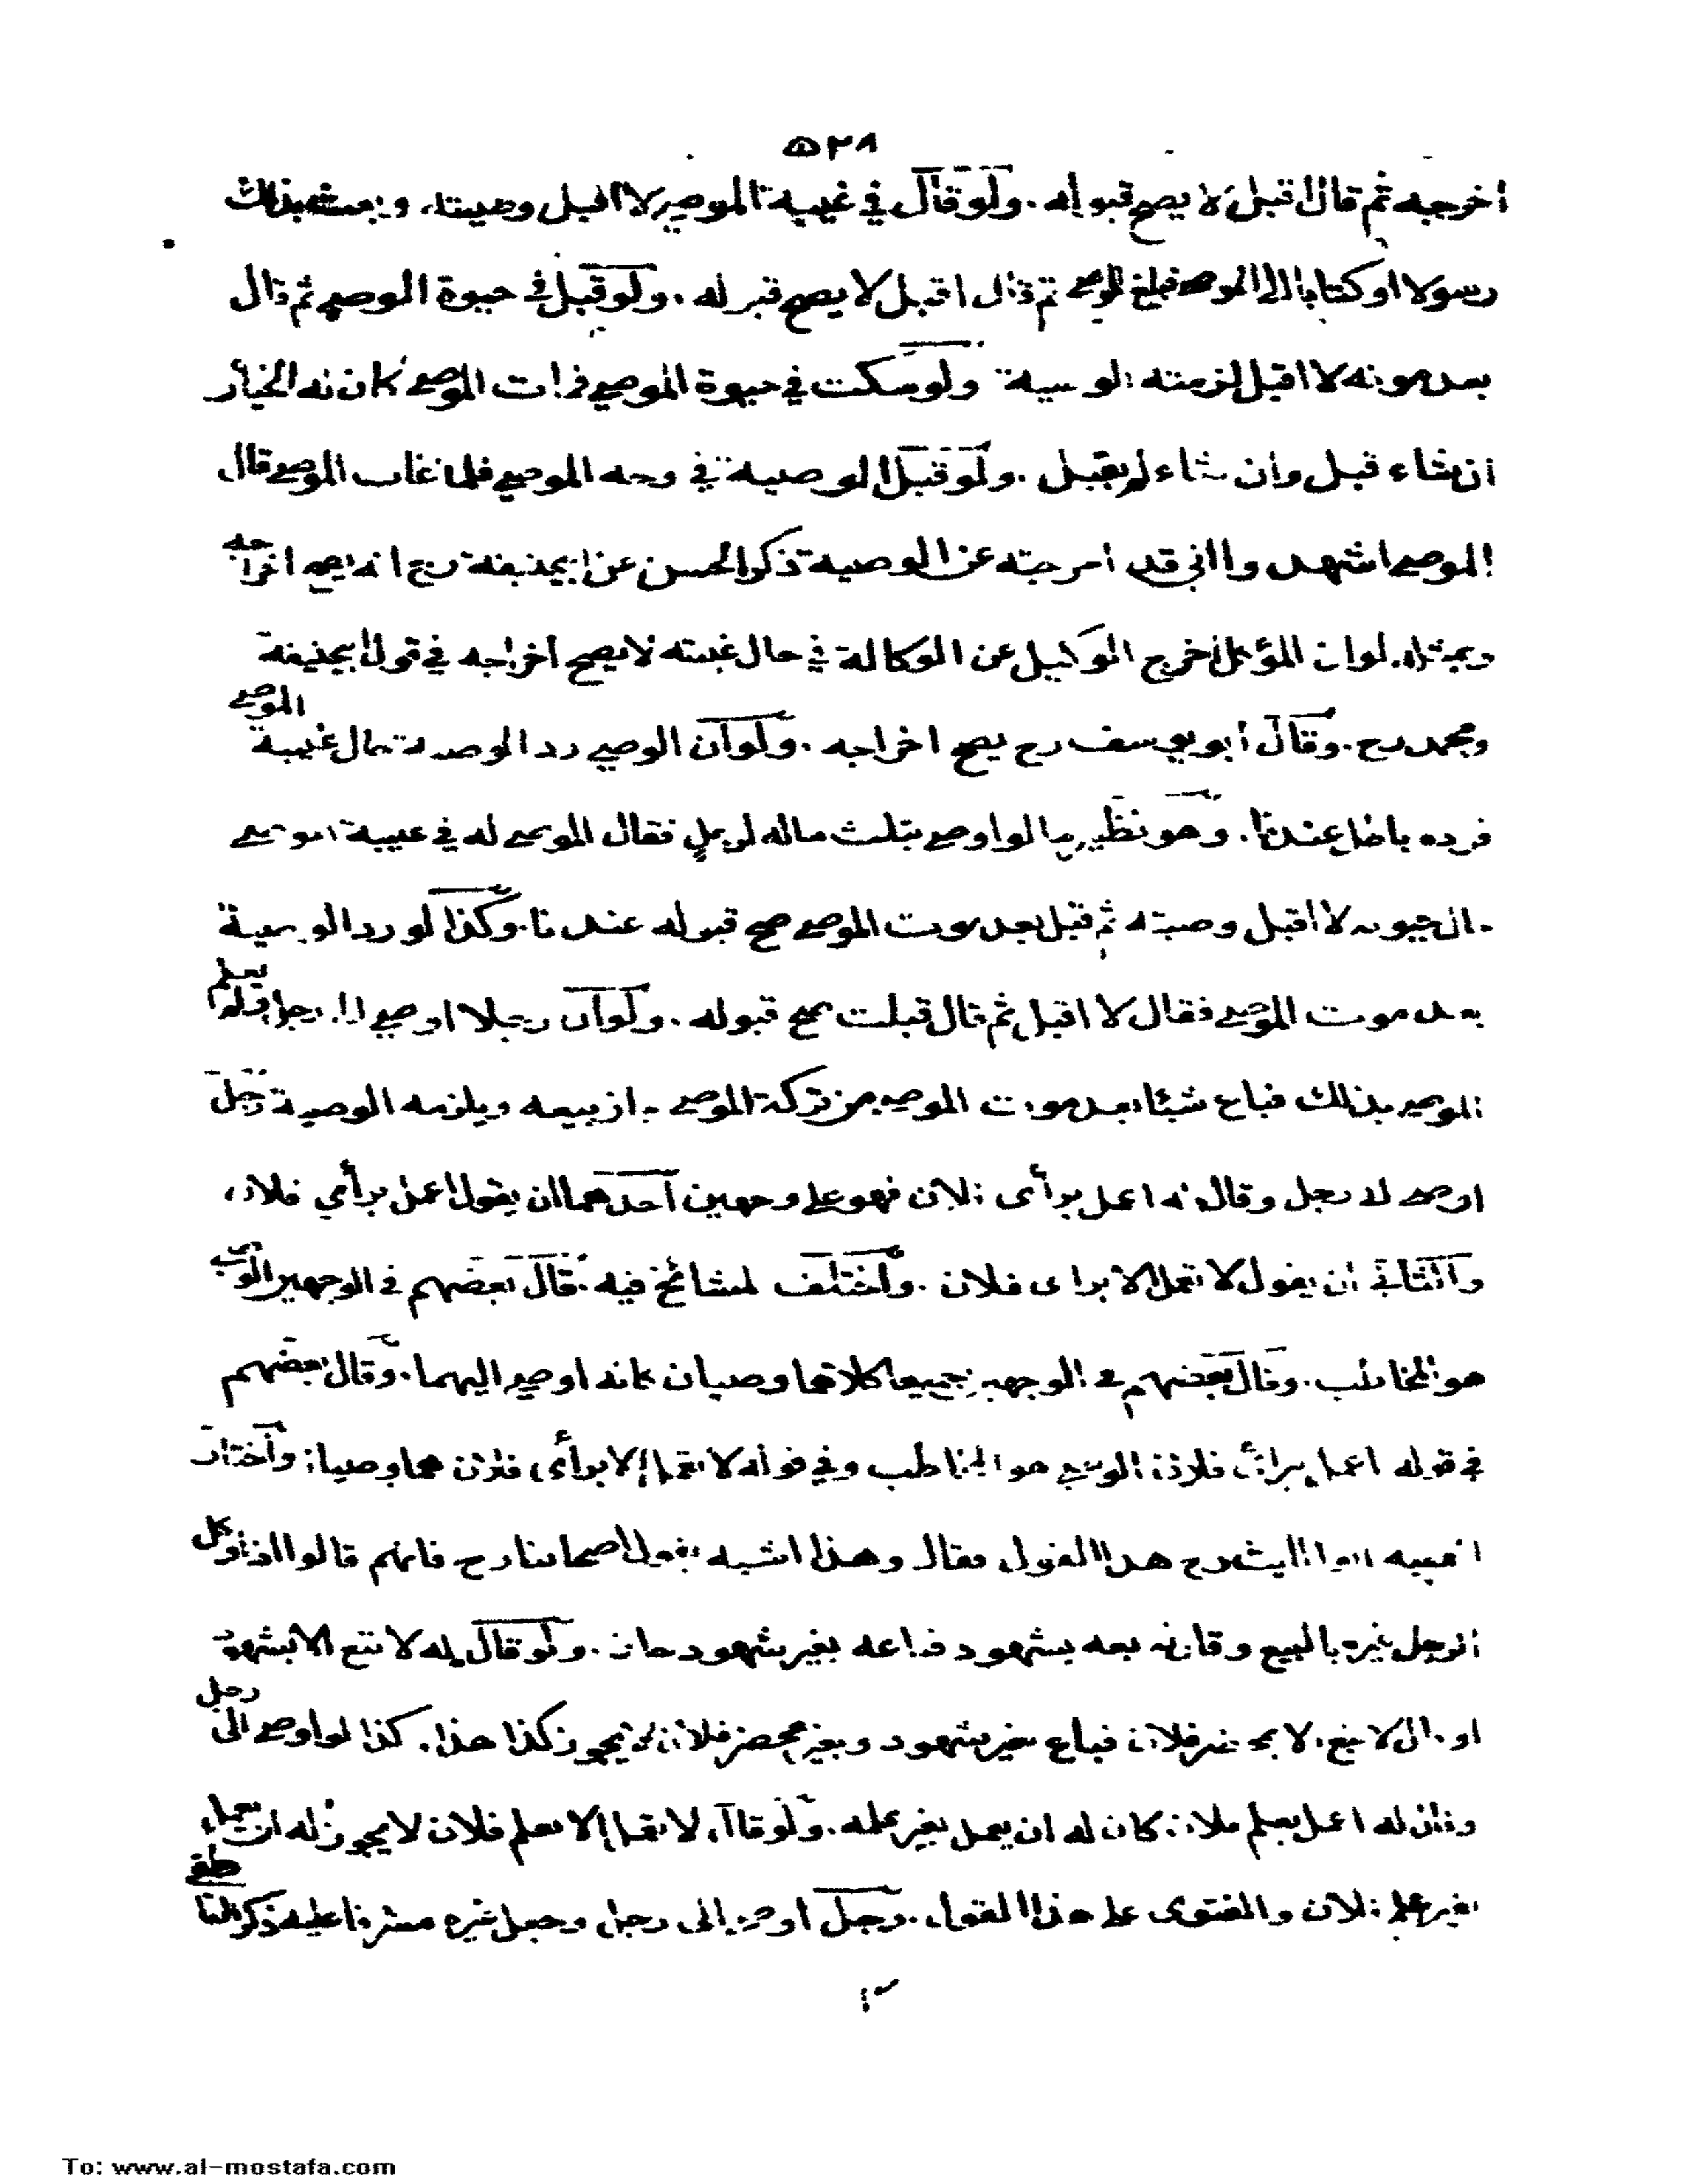 ٥٢٨
اخرجه ثم قال اقبل لا يصح قبوله . ولو قال في غيبة الموصي لا اقبل وصيته وبعث بذلك
رسولا او كتابا الى الموصي فبلغ الموصي ثم قال اقبل لا يصح قبوله . ولو قبل في حيوة الموصي ثم قال
بعد موته لا اقبل لزمته الوصية ولو سكت في حيوة الموصي فمات الموصي كان له الخيار
ان شاء قبل وان شاء لم يقبل . ولو قبل الوصية في وجه الموصي فلما غاب الموصي قال
الموصي اشهدوا اني قد اخرجته عن الوصية ذكر الحسن عن ابيحنيفة رح انه يصح اخراجه
وبمثله لو ان الموكل اخرج الوكيل عن الوكالة في حال غيبته لا يصح اخراجه في قول ابيحنيفة
ومحمد رح . وقال أبو يوسف رح يصح اخراجه . ولو ان الوصي رد الوصية حال غيبة الموصي
فرده باطل عندنا . وهو نظير ما لو اوصى بثلث ماله لرجل فقال الموصى له في غيبة الموصي
حال حيوته لا اقبل وصيته ثم قبل بعد موت الموصي صح قبوله عندنا . وكذا لو رد الوصية
بعد موت الموصي فقال لا اقبل ثم قال قبلت صح قبوله . ولو ان رجلا اوصى الى رجل فلم يعلم
الموصى بذلك فباع شيئا بعد موت الموصي من تركة الموصي جاز بيعه ويلزمه الوصية رجل
اوصى الى رجل وقال له اعمل برأى فلان فهو على وجهين احدهما ان يقول اعمل برأي فلان
والثاني ان يقول لا تعمل الا براى فلان . واختلف المشائخ فيه . قال بعضهم في الوجهين الوصي
هو المخاطب . وقال بعضهم في الوجهين جميعا كلاهما وصيان كانه اوصى اليهما . وقال بعضهم
في قوله اعمل برأى فلان الوصي هو المخاطب وفي قوله لا تعمل الا برأى فلان هما وصيان واختار
الفقيه ابو الليث رح هذا القول فقال وهذا اشبه بقول اصحابنا رح فانهم قالوا اذا وكل
الرجل غيره بالبيع وقال له بعه بشهود فباعه بغير شهود جاز . ولو قال له لا تبع الا بشهود
او قال لا تبع الا بمحضر فلان فباع بغير شهود وبغير محضر فلان لا يجوز كذا هذا . كذا لو اوصى الى رجل
وقال له اعمل بعلم فلان كان له ان يعمل بغير علمه . ولو قال لا تعمل الا بعلم فلان لا يجوز له ان يعمل
بغير علم فلان والفتوى على هذا القول . رجل اوصى الى رجل وجعل غيره مشرفا عليه ذكر الناطفي
To: www.al-mostafa.com